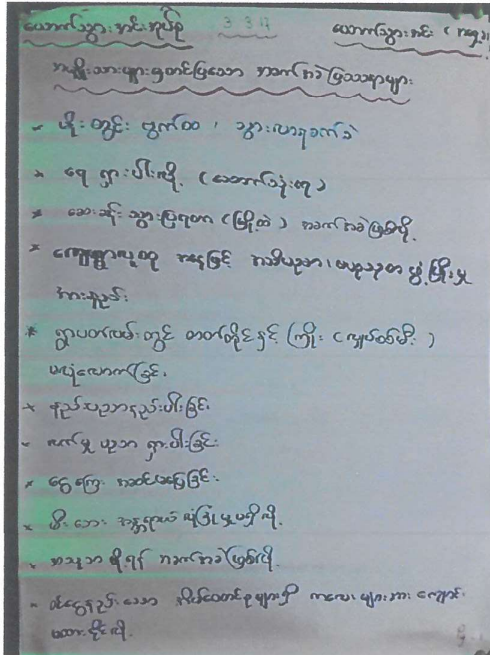 ယောက်သွားအင်းအုပ်စု 3.3.17 ယောက်သွားအင်း (ရှေ့)
အမျိုးသားများမှတင်ပြသော အခက်အခဲပြဿနာများ
မိုးတွင်း ဗွက်ထ၊ သွားလာရခက်ခဲ
* ရေ ရှားပါးလို့ (သောက်သုံးရေ)
* ဆေးခန်း သွားပြရတာ (မြို့ထဲ) အခက်အခဲဖြစ်လို့
* ကျေးရွာလူထု အနေဖြင့် အသိပညာ၊ ဗဟုသုတ ဖွံ့ဖြိုးမှု
အားနည်း
* ရွာပတ်လမ်းတွင် ဓာတ်တိုင်နှင့် ကြိုး (လျှပ်စစ်မီး)
မလုံလောက်ခြင်း
* နည်းပညာနည်းပါးခြင်း
- လက်မှုပညာ ရှားပါးခြင်း
* ငွေကြေး အဆင်မပြေခြင်း
* မီးဘေး အန္တရာယ် လုံခြုံမှုမရှိလို့
အသုဘ ပို့ရန် အခက်အခဲဖြစ်လို့
ဝင်ငွေနည်းသော မိသားစုများရှိ ကလေးများအား ကျောင်း
မထားနိုင်လို့